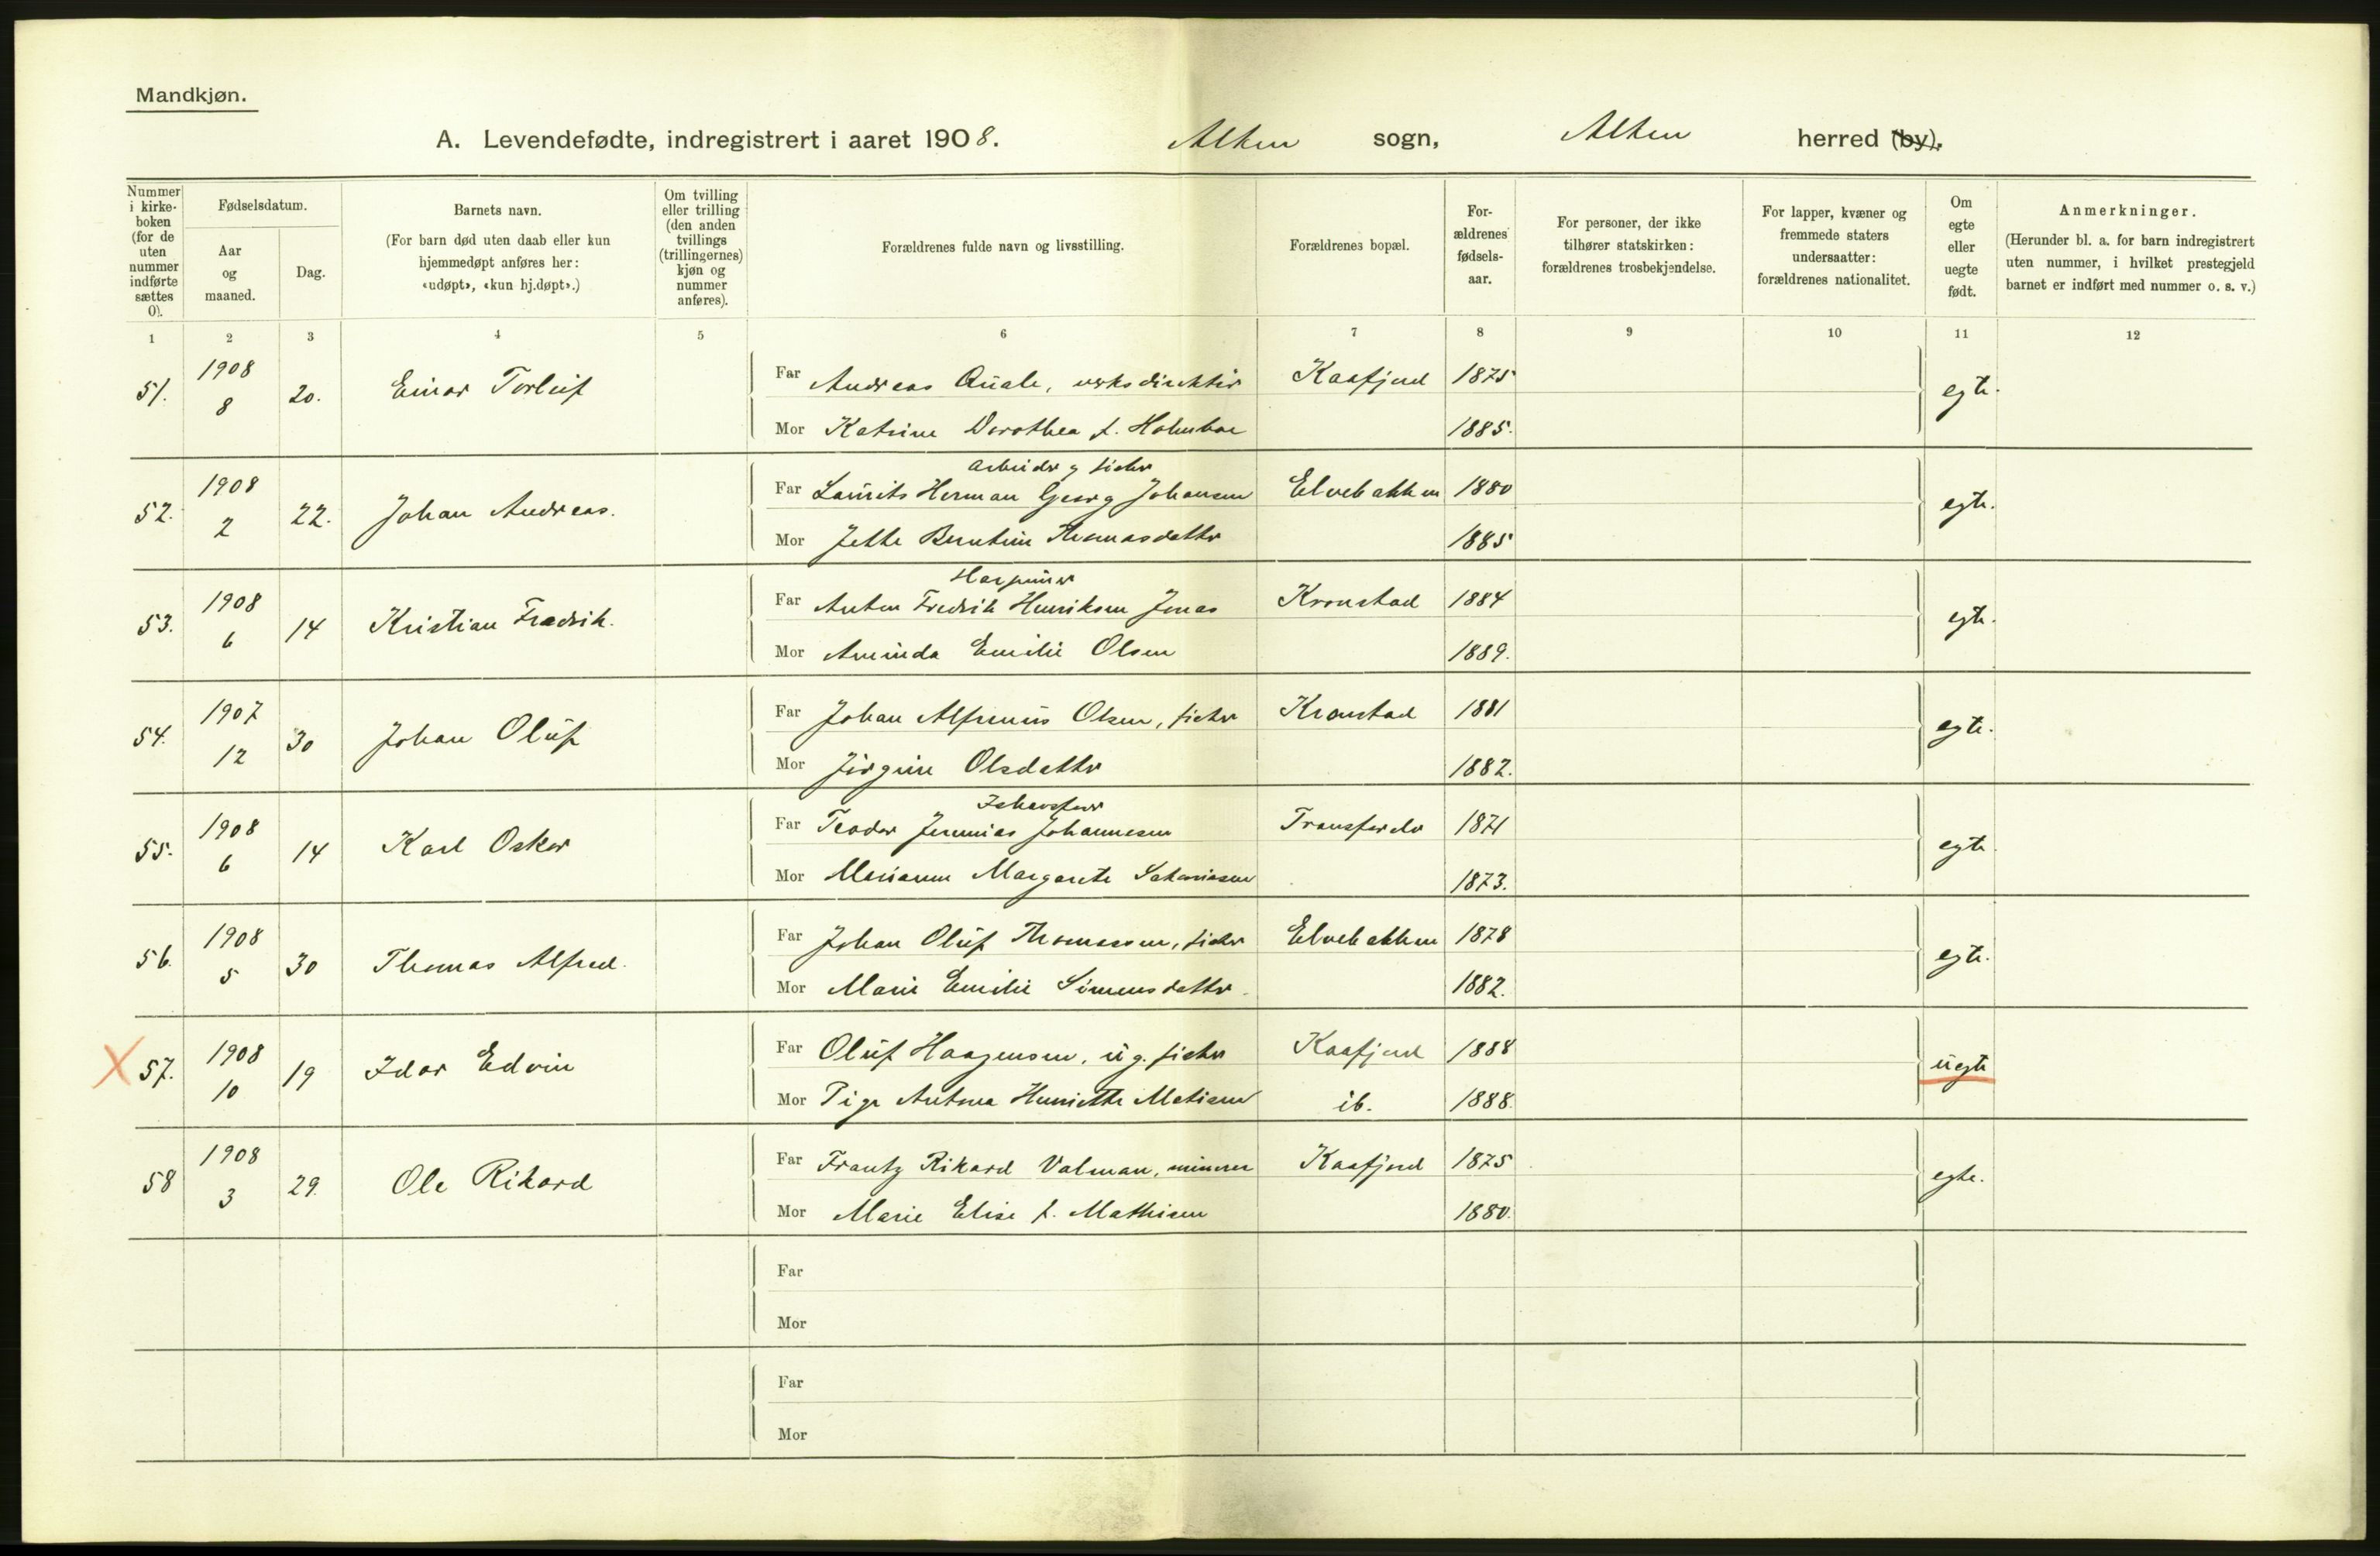 Mandkjøn.
A. Levendefødte, indregistrert i aaret 1908. Alten sogn, Alten herred (by).
Nummer i kirke-boken (for de uten nummer indførte sættes 0).
Fødselsdatum.
Aar og maaned.
Dag.
Barnets navn.
(For barn død uten daab eller kun hjemmedøpt anføres her: «udøpt», «kun hj.døpt».)
Om tvilling eller trilling (den anden tvillings (trillingernes) kjøn og nummer anføres).
Forældrenes fulde navn og livsstilling.
Forældrenes bopæl.
For-ældrenes fødsels-aar.
For personer, der ikke tilhører statskirken: forældrenes trosbekjendelse.
For lapper, kvæner og fremmede staters undersaatter: forældrenes nationalitet.
Om egte eller uegte født.
Anmerkninger.
(Herunder bl. a. for barn indregistrert uten nummer, i hvilket prestegjeld barnet er indført med nummer o. s. v.)
1 2 3 4 5 6 7 8 9 10 11 12
51. 1908 8 20. Einar Torleif Far Andreas Quale, verksdirektør Kaafjord 1875 egte.
Mor Katrine Dorothea f. Holmboe 1885.
arbeider og fisker
52. 1908 2 22. Johan Andreas. Far Laurits Herman Georg Johansen Elvebakken 1880 egte.
Mor Jette Berntine Thomasdatter 1885
53. 1908 6 14 Kristian Fredrik. Far Anton Fredrik Henriksen Jonas Kronstad 1884 egte.
Mor Aminda Emilie Olsen 1889.
54. 1907 12 30 Johan Oluf Far Johan Alfonius Olsen, fisker Kronstad 1881 egte.
Mor Jørgine Olsdatter 1882.
55. 1908 6 14 Karl Oskar Far Teodor Jeremias Johannesen Transfarelv 1871 egte.
Mor Marianne Margarete Sakariasen 1873.
56. 1908 5 30 Thomas Alfred. Far Johan Oluf Thomassen, fisker Elvebakken 1878 egte.
Mor Marie Emilie Simensdatter 1882.
X 57. 1908 10 19 Idar Edvin Far Oluf Haagensen, ug. fisker Kaafjord 1888 uegte
Mor Pige Antona Henriette Matisen ib. 1888.
58 1908 3 29. Ole Rikard Far Frantz Rikard Valman, minerer Kaafjord 1875 egte.
Mor Marie Elise f. Mathisen 1880.
Far
Mor
Far
Mor